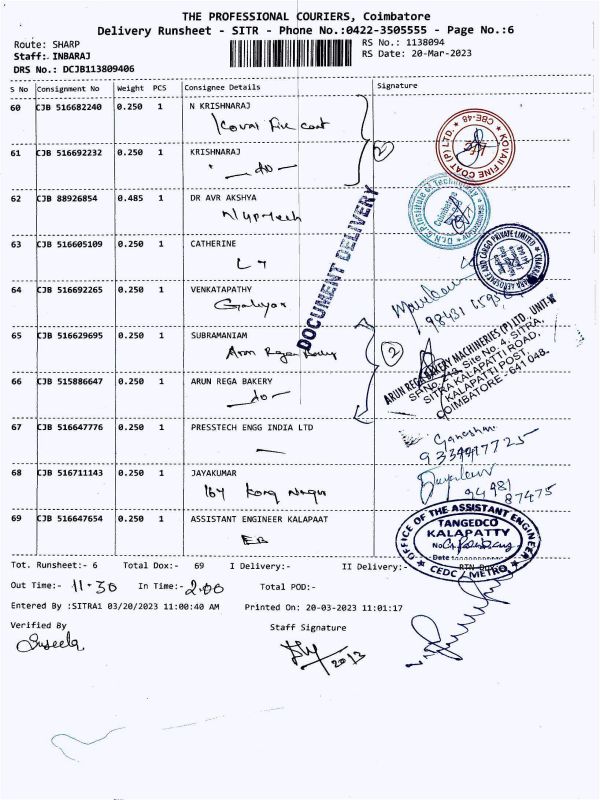 THE PROFESSIONAL COURIERS, Coimbatore
Delivery Runsheet - SITR - Phone No.:0422-3505555 - Page No.:6
Route: SHARP
RS No.: 1138094
Staff: INBARAJ
RS Date: 20-Mar-2023
DRS No.: DCJB113809406
S No Consignment No Weight PCS Consignee Details Signature
60 CJB 516682240 0.250 1 N KRISHNARAJ
Kovai Fine coat
KOVAI FINE COAT (P) LTD. CBE-48
61 CJB 516692232 0.250 1 KRISHNARAJ
-do-
2
62 CJB 88926854 0.485 1 DR AVR AKSHYA
Dr.N.G.P Institute of Technology
Coimbatore
DOCUMENT DELIVERY
63 CJB 516605109 0.250 1 CATHERINE
L T
AEROSPACE AND CARGO PRIVATE LIMITED
64 CJB 516692265 0.250 1 VENKATAPATHY
65 CJB 516629695 0.250 1 SUBRAMANIAM
Arun Rega Bakery
2
ARUN REGA BAKERY MACHINERIES (P) LTD., UNIT-IV
Site No. 4, SITRA,
SITRA KALAPATTI ROAD,
KALAPATTI POST
COIMBATORE - 641 048.
66 CJB 515886647 0.250 1 ARUN REGA BAKERY
-do-
67 CJB 516647776 1 0.250 PRESSTECH ENGG INDIA LTD
Ganeshan
68 CJB 516711143 0.250 1 JAYAKUMAR
167
94981
87475
69 CJB 516647654 0.250 1 ASSISTANT ENGINEER KALAPAAT
EB
OFFICE OF THE ASSISTANT ENGINEER
TANGEDCO
KALAPATTY
No
Date
CEDC / METRO
Tot. Runsheet:- 6 Total Dox:- 69 I Delivery:- II Delivery:-
Out Time:- 11-30 In Time:- 2.00 Total POD:-
Entered By :SITRA1 03/20/2023 11:00:40 AM Printed On: 20-03-2023 11:01:17
Verified By
Suseela
Staff Signature
20/3